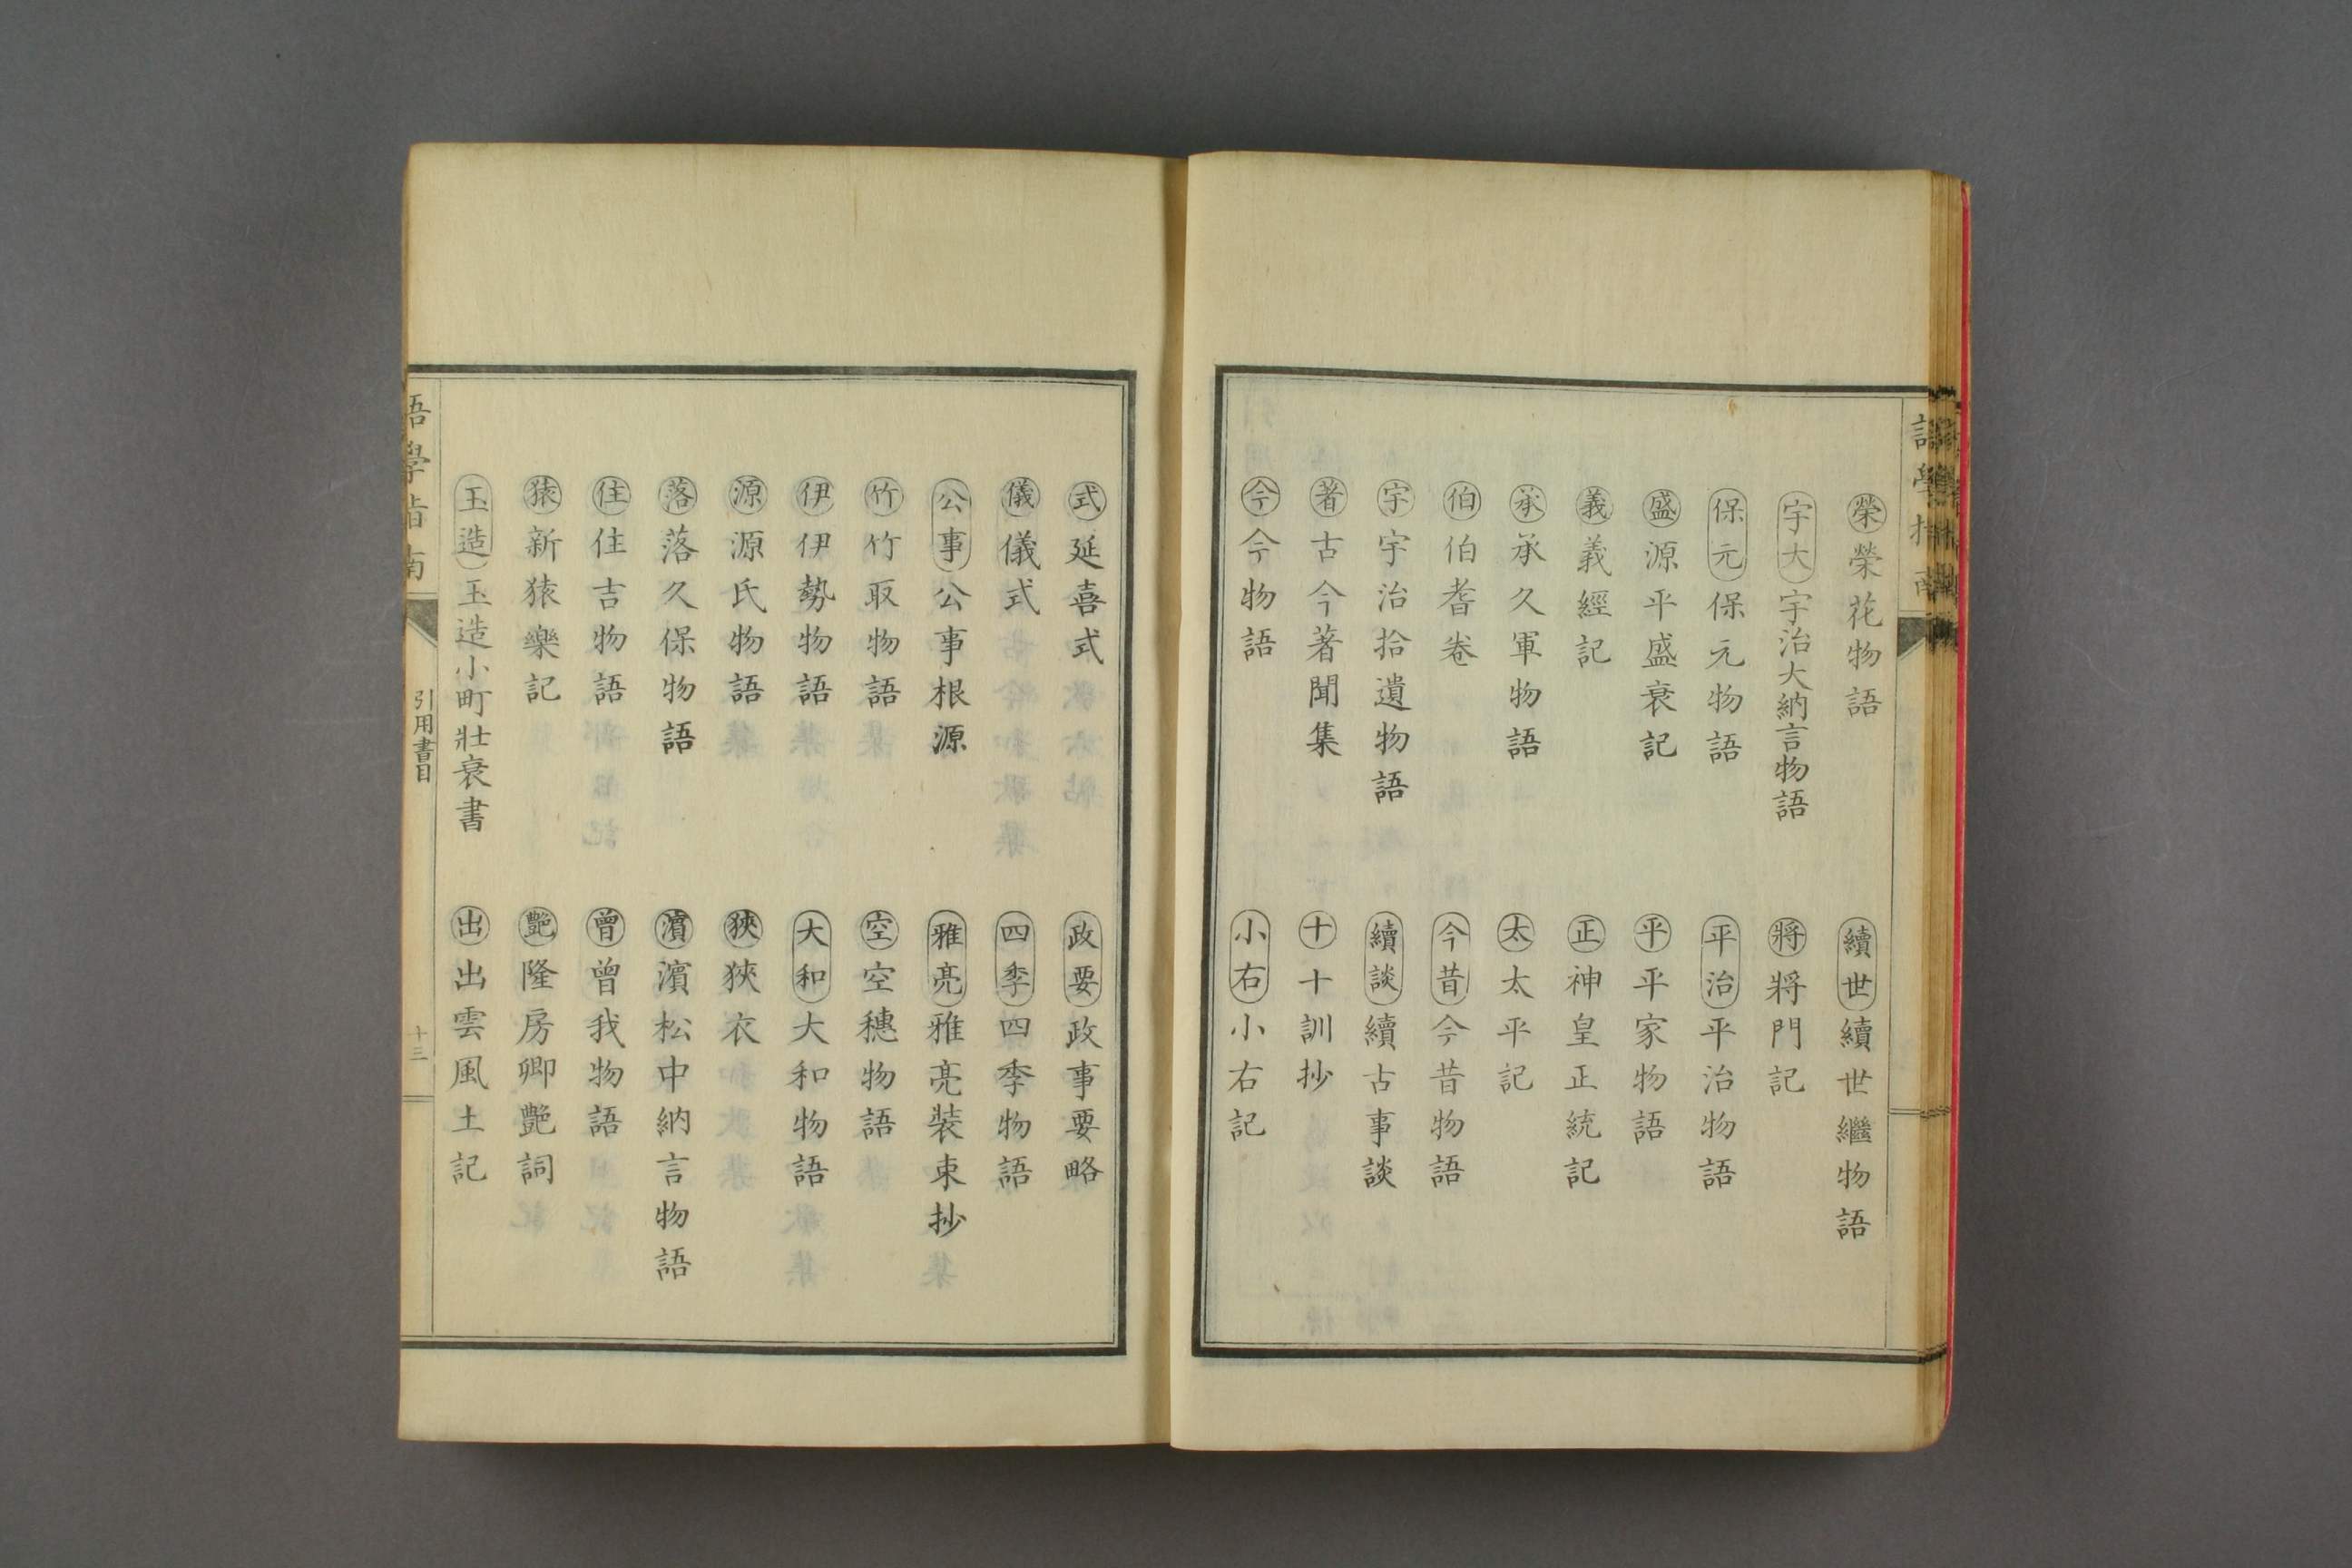 榮 榮花物語
續世 續世繼物語
宇大 宇治大納言物語
將 將門記
保元 保元物語
平治 平治物語
盛 源平盛衰記
平 平家物語
義 義經記
正 神皇正統記
承 承久軍物語
太 太平記
伯 伯耆卷
今昔 今昔物語
宇 宇治拾遺物語
續談 續古事談
著 古今著聞集
十 十訓抄
今 今物語
小右 小右記
式 延喜式
政要 政事要略
儀 儀式
四季 四季物語
公事 公事根源
雅亮 雅亮装束抄
竹 竹取物語
空 空穗物語
伊 伊勢物語
大和 大和物語
源 源氏物語
狹 狹衣
落 落久保物語
濱 濱松中納言物語
住 住吉物語
曾 曾我物語
猿 新猿樂記
艷 隆房卿艷詞
玉造 玉造小町壯衰書
出 出雲風土記
語學指南
引用書目
十三